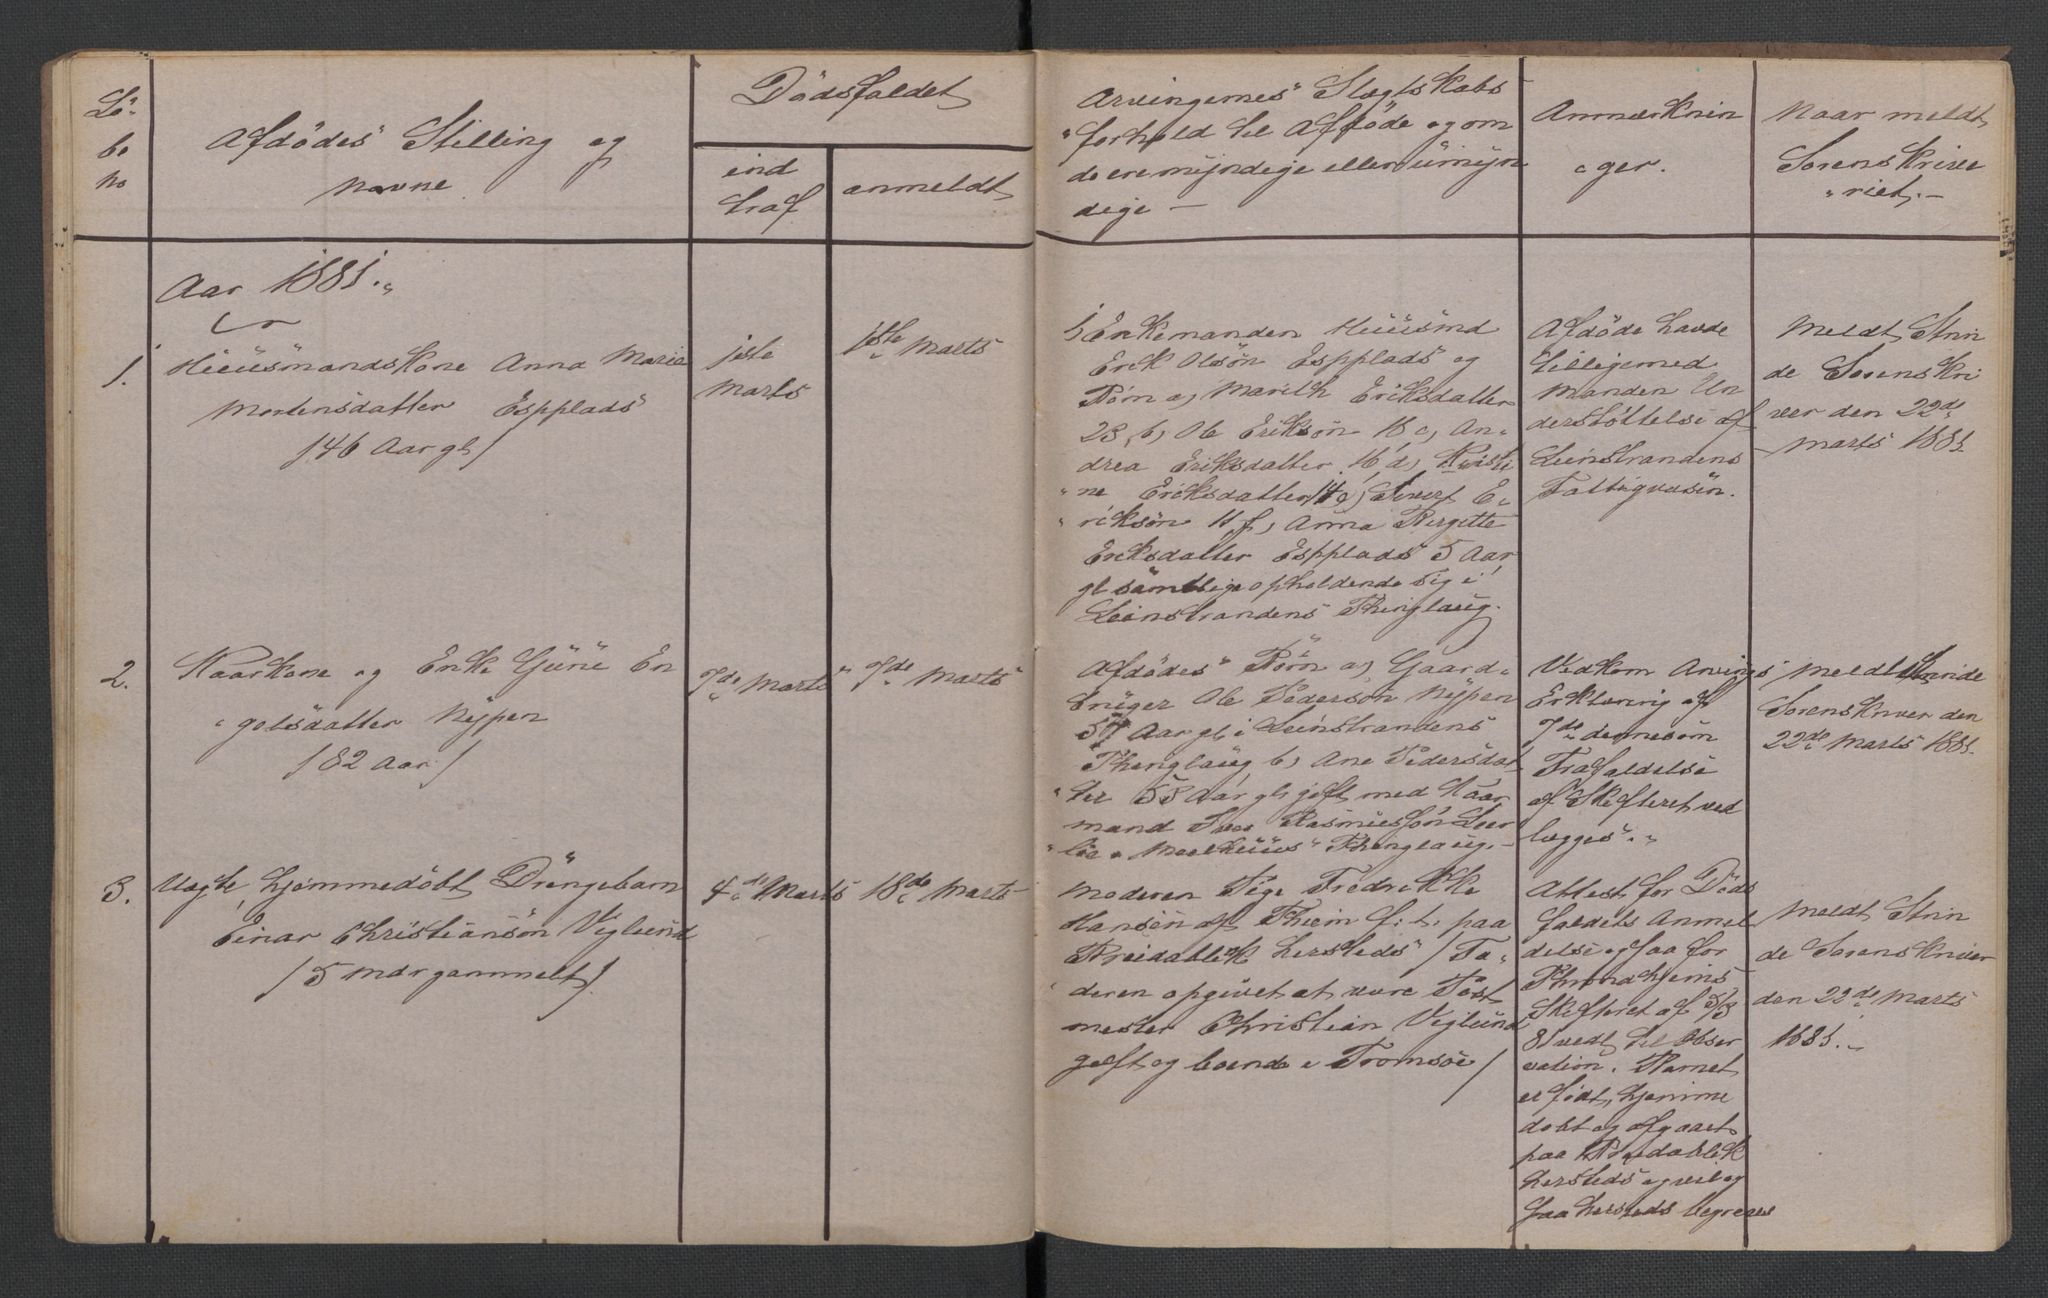 Lö-
be
No
Afdödes Stilling og
Navne.
Dödsfaldet
ind
traf
anmeldt
Arvingernes Slægtskabs
forhold til Afdöde og om
de ere myndige eller umyn
dige —
Anmærknin
ger.
Naar meldt
Sorenskrive
riet. —
Aar 1881.
1.
Huusmandskone Anna Maria
Mortensdatter Espplads
/46 Aar gl/
1ste
Marts
1ste Marts
Enkemanden Huusmd
Erik Olsön Espplads og
Börn a, Marith Eriksdatter
23, b, Ole Eriksön 18 c, An-
drea Eriksdatter 16 d, Kristi
ne Eriksdatter 14 e, Sivert E-
riksön 11 f, Anna Bergitte
Eriksdatter Espplads 5 Aar
gl samtlige opholdende sig i
Leinstrandens Thinglaug.
Afdöde havde
tilligemed
Manden Un
derstöttelse af
Leinstrandens
Fattigvæsen.
Meldt Strin
de Sorenskri
ver den 22de
Marts 1881.
2.
Kaarkone og Enke Guru En
golsdatter Nypen
/82 Aar/
7de Marts
7de Marts
Afdödes Börn a, Gaard-
bruger Ole Pedersön Nypen
57 Aar gl i Leinstrandens
Thinglaug b, Ane Pedersdat
ter 58 Aar gl gift med Kaar
mand Iver Rasmussön Leer
lia Meelhuus Thinglaug. —
Vedkom Arvings
Erklæring af
7de dennesom
Frafaldelse
af Skifteret ved
lægges.
Meldt Strinde
Sorenskriver den
22de Marts 1881.
3.
Uægte, hjemmedöbt Drengebarn
Einar Christiansön Viglund
/5 mdr gammelt/
4de Marts
18de Marts
Moderen Pige Fredrikke
Hansen af Thiem f: t. paa
Breidablik hersteds /Fa-
deren opgivet at være Post
mester Christian Viglund
gift og boende i Tromsöe/
Attest for Döds
faldets Anmel
delse ogsaa for
Throndhjems
Skifteret af 5/3
81 vedl til Obser
vation. Barnet
er födt, hjemme
döbt og afgaaet
paa Breidablik
hersteds og vil og
saa hersteds begraves
Meldt Strin
de Sorenskriver
den 22de Marts
1881. —